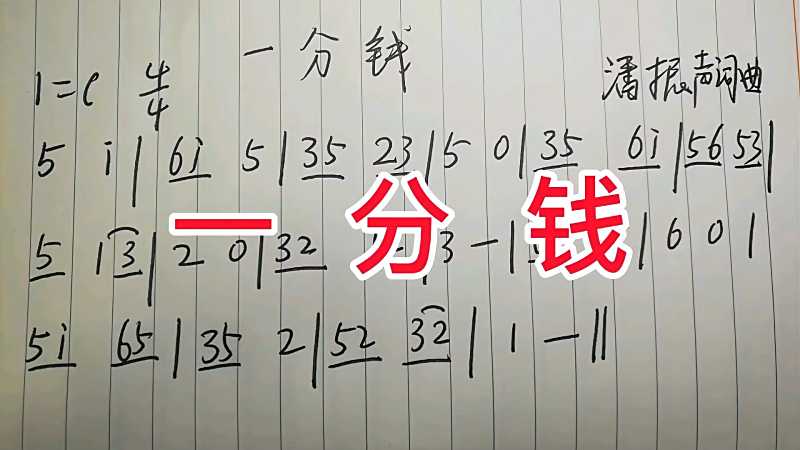 一分钱
1=C 4/4 潘振声词曲
5 i | 6i 5 | 35 23 | 5 0 | 35 6i | 56 53 |
一分钱
5 13 | 2 0 | 32 3 - | | 6 0 |
5i 65 | 35 2 | 52 32 | 1 - ||